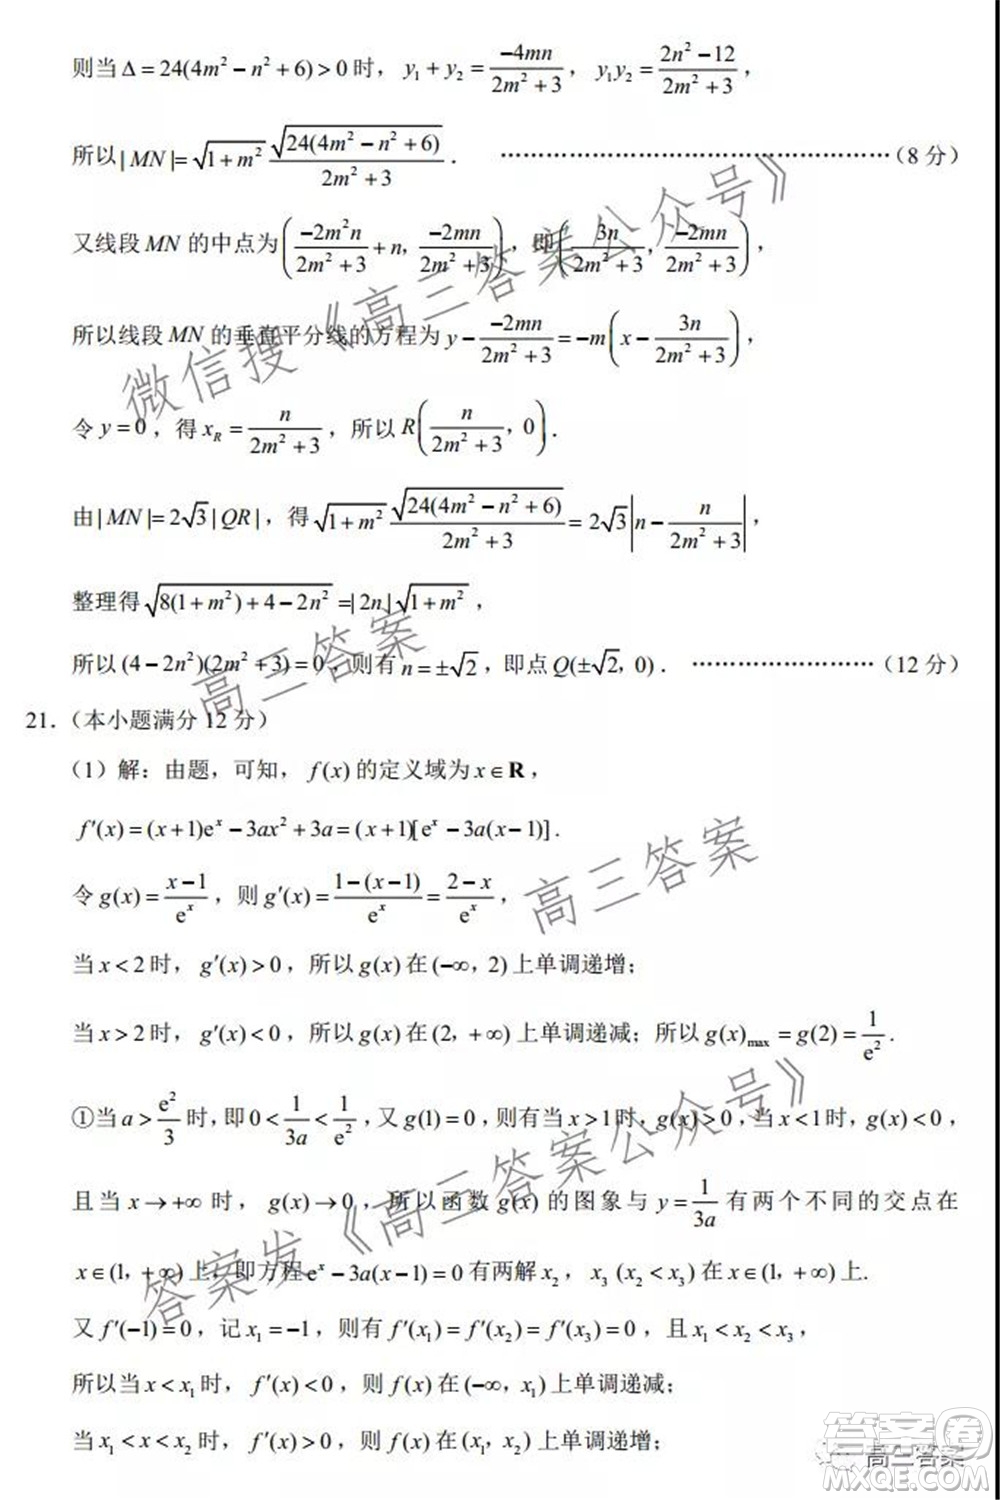 则当 Δ = 24(4m² − n² + 6) > 0 时，y₁ + y₂ = −4mn/(2m² + 3)，y₁y₂ = (2n² − 12)/(2m² + 3)，
所以 | MN |= √(1 + m²) √(24(4m² − n² + 6))/(2m² + 3)． ……………………………………………（8 分）
又线段 MN 的中点为 (−2m²n/(2m² + 3) + n，−2mn/(2m² + 3))，即 (3n/(2m² + 3)，−2mn/(2m² + 3))，
所以线段 MN 的垂直平分线的方程为 y − −2mn/(2m² + 3) = −m(x − 3n/(2m² + 3))，
令 y = 0，得 x_R = n/(2m² + 3)，所以 R(n/(2m² + 3)，0)．
由 | MN |= 2√3 | QR |，得 √(1 + m²) √(24(4m² − n² + 6))/(2m² + 3) = 2√3 |n − n/(2m² + 3)|，
整理得 √(8(1 + m²) + 4 − 2n²) =| 2n | √(1 + m²)，
所以 (4 − 2n²)(2m² + 3) = 0，则有 n = ±√2，即点 Q(±√2，0)． ……………………（12 分）
21．（本小题满分 12 分）
（1）解：由题，可知，f(x) 的定义域为 x ∈ R，
f′(x) = (x + 1)eˣ − 3ax² + 3a = (x + 1)[eˣ − 3a(x − 1)]．
令 g(x) = (x − 1)/eˣ，则 g′(x) = (1 − (x − 1))/eˣ = (2 − x)/eˣ，
当 x < 2 时，g′(x) > 0，所以 g(x) 在 (−∞，2) 上单调递增；
当 x > 2 时，g′(x) < 0，所以 g(x) 在 (2，+∞) 上单调递减；所以 g(x)max = g(2) = 1/e²．
①当 a > e²/3 时，即 0 < 1/3a < 1/e²，又 g(1) = 0，则有当 x > 1 时，g(x) > 0，当 x < 1 时，g(x) < 0，
且当 x → +∞ 时，g(x) → 0，所以函数 g(x) 的图象与 y = 1/3a 有两个不同的交点在
x ∈ (1，+∞) 上，即方程 eˣ − 3a(x − 1) = 0 有两解 x₂，x₃ (x₂ < x₃) 在 x ∈ (1，+∞) 上.
又 f′(−1) = 0，记 x₁ = −1，则有 f′(x₁) = f′(x₂) = f′(x₃) = 0，且 x₁ < x₂ < x₃，
所以当 x < x₁ 时，f′(x) < 0，则 f(x) 在 (−∞，x₁) 上单调递减；
当 x₁ < x < x₂ 时，f′(x) > 0，则 f(x) 在 (x₁，x₂) 上单调递增；
微信搜《高三答案公众号》
高三答案
高三答案
答案发《高三答案公众号》
高三答案
答案圈
MXQE.COM